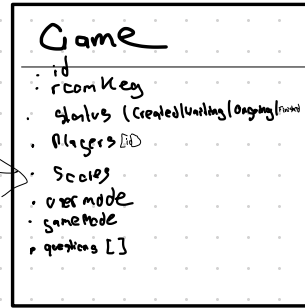 Game
· id
· roomKey
· status (Created|Waiting|Ongoing|Finished
· Players [iD]
· Scores
· user mode
· gameMode
· questions []